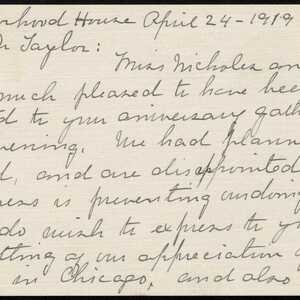 orhood House April 24-1919
Dr Taylor:
Miss Nicholes an
much pleased to have been
d to your anniversary gath
vening. We had plann
d, and are disappointed
ness is preventing us doing
do wish to express to yo
thing of our appreciation o
in Chicago, and also